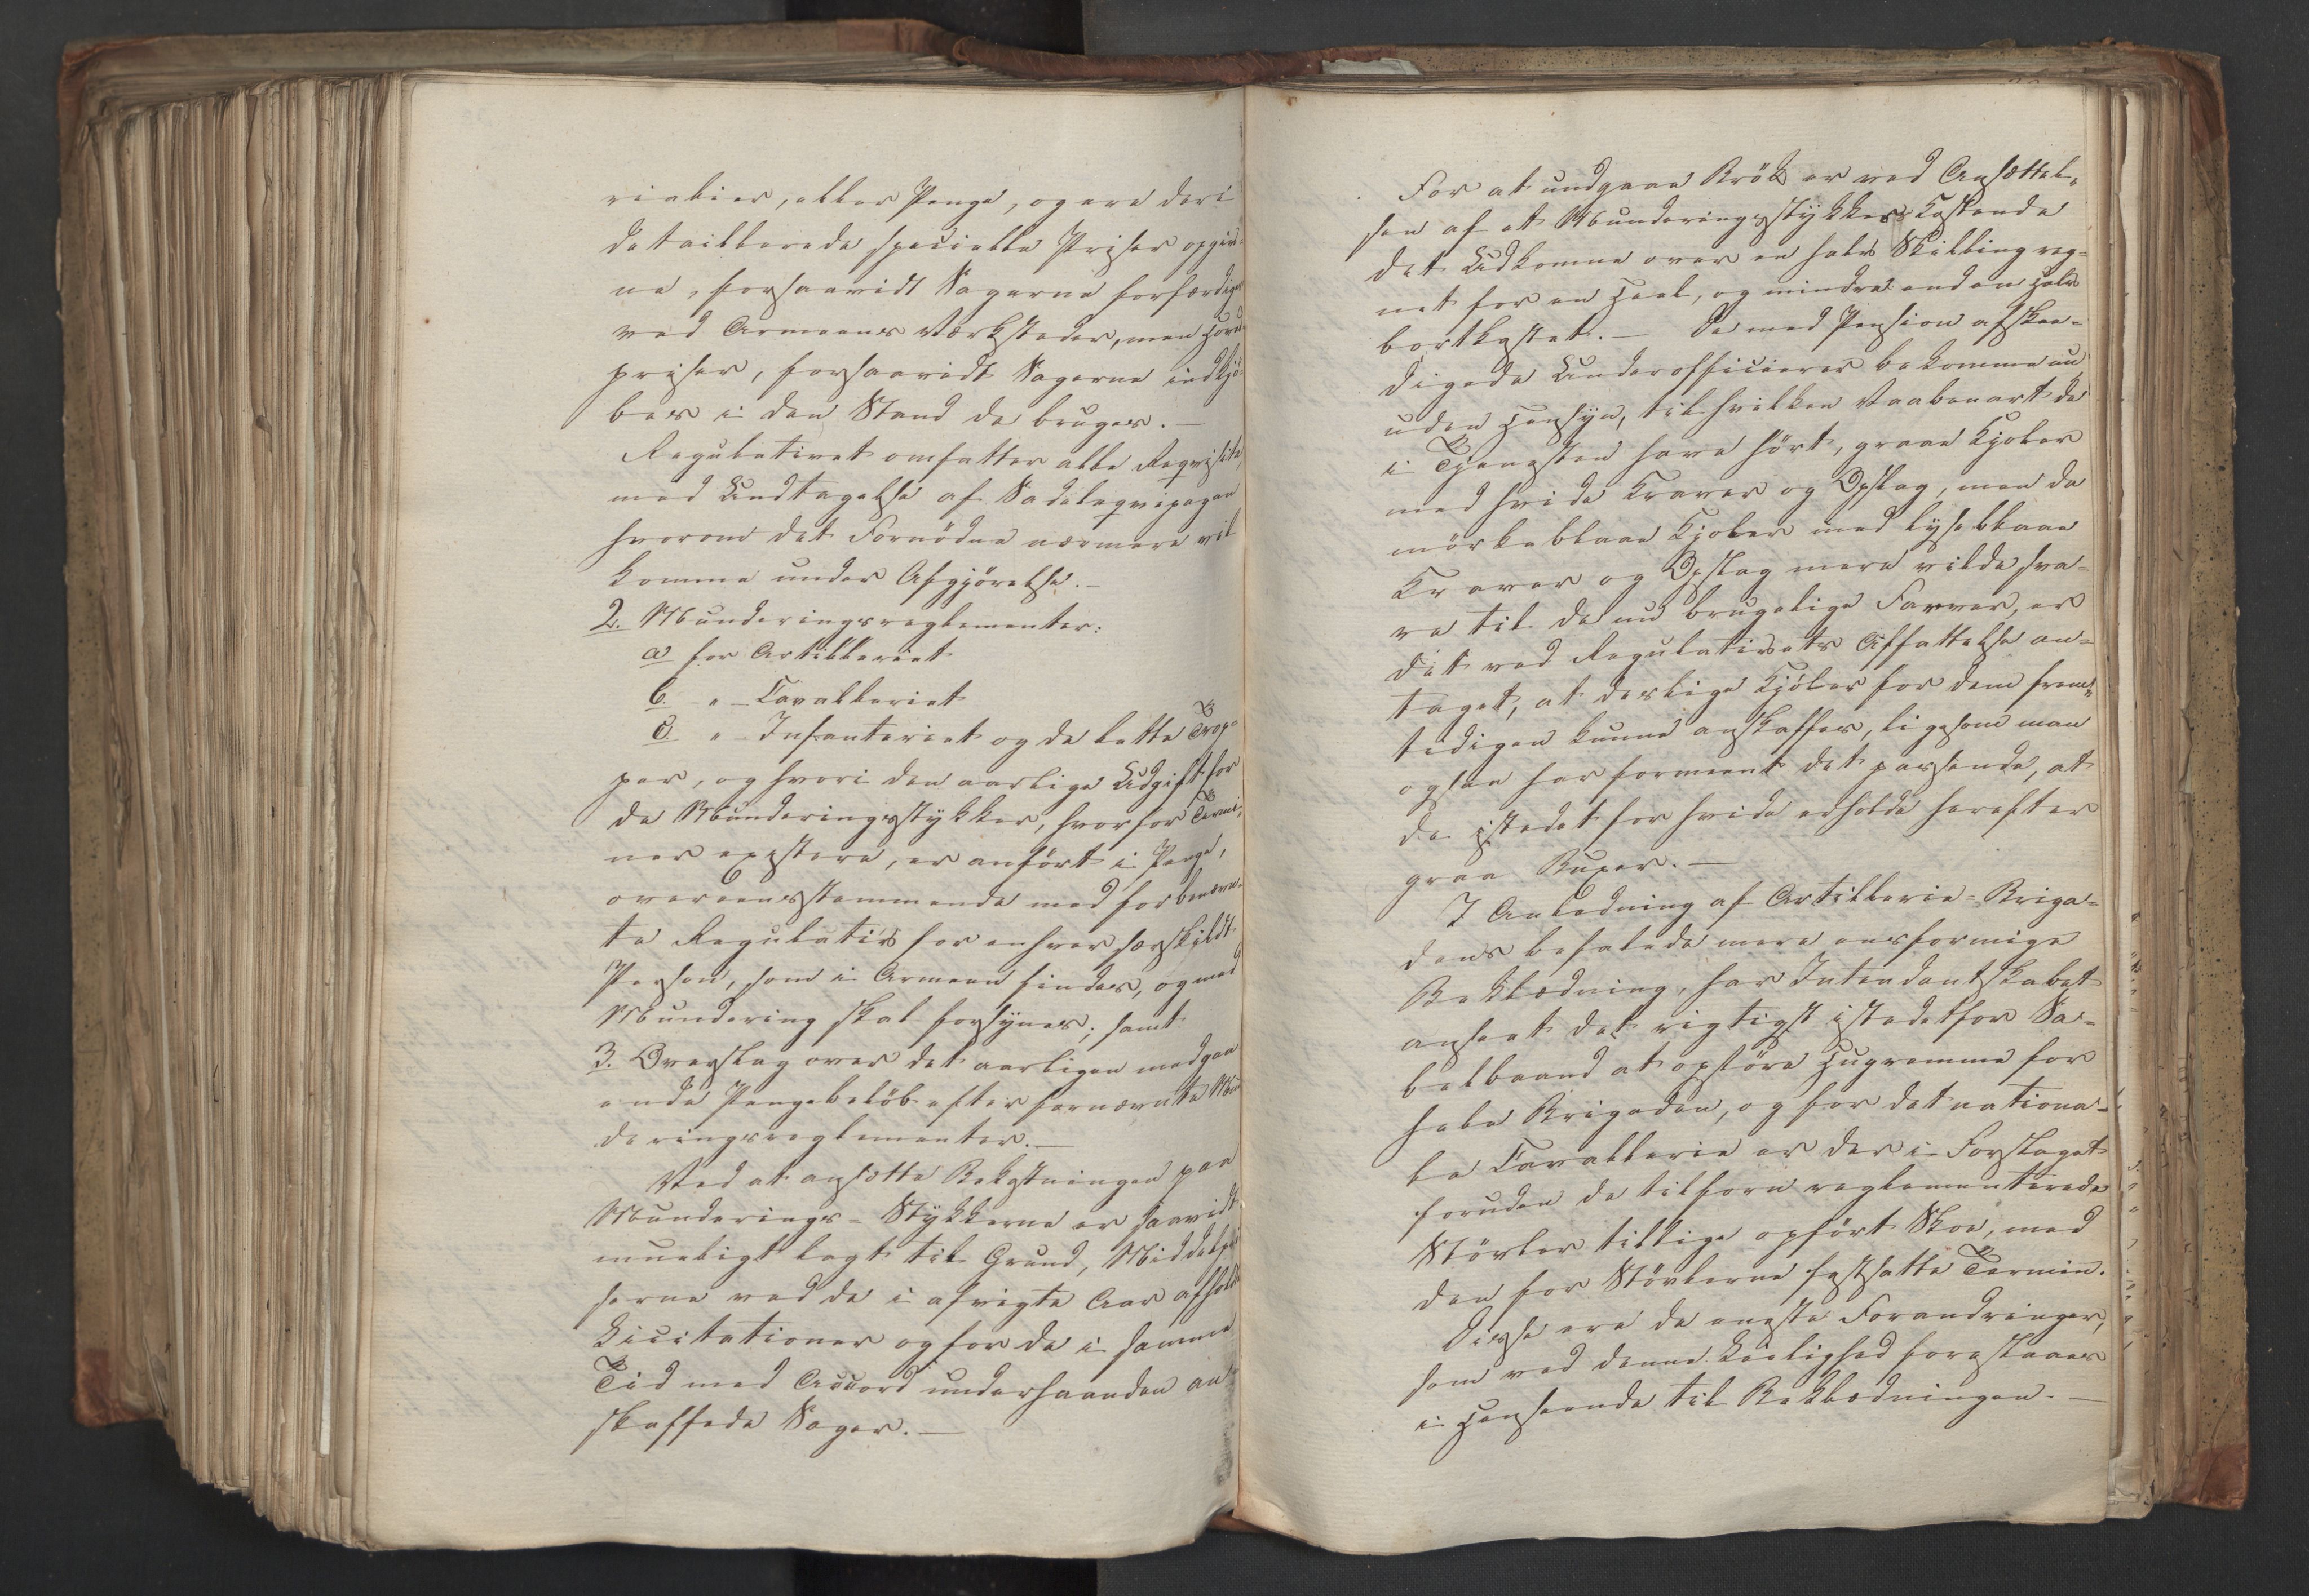 rialier, eller Penge, og ere deri
detaillerede specielle Priser opgiv-
ne, forsaavidt Sagerne forfærdiges
ved Armeens Værksteder, men Hoved-
priser, forsaavidt Sagerne indkjø-
bes i den Stand de bruges. —
Regulativet omfatter alle Reqvisiter,
med Undtagelse af Sadeleqvipagen
hvorom det Fornödne nærmere vil
komme under Afgjörelse. —
2. Munderingsreglementer:
a for Artilleriet
b. " — Cavalleriet
c. " — Infanteriet og de lette Trop-
per, og hvori den aarlige Udgift for
de Munderingsstykker, hvorfor Termi-
ner existere, er anfört i Penge,
overeensstemmende med forbenævn-
te Regulativ for enhver særskildt
Person, som i Armeen findes, og med
Mundering skal forsÿnes; samt
3. Overslag over det aarligen medgaa-
ende Pengebelöb efter fornævnte Mun-
deringsreglementer. —
Ved at ansætte Bekostningen paa
Munderings-Stykkerne er saavidt
mueligt lagt til Grund, Middelpri-
serne ved de i afvigte Aar afholdte
Licitationer og for de i samme
Tid med Accord underhaanden an-
skaffede Sager. —
For at undgaae Brök er ved Ansættel-
sen af et Munderingsstykkes Kostende
det Udkomne over en halv Skilling reg-
net for en Heel, og mindre end en halv
bortkastet. — De med Pension afskee-
digede Underofficierer bekomme nu
uden Hensyn, til hvilken Vaabenart de
i Tjenesten have hört, graae Kjoler
med hvide Kraver og Opslag, men da
mörkeblaae Kjoler med lyseblaae
Kraver og Opslag mere vilde sva-
re til de nu brugelige Farver, er
det ved Regulativets Affattelse an-
taget, at deslige Kjöler for dem frem-
tidigen kunne anskaffes, ligesom man
ogsaa har formeent det passende, at
de istedet for hvide erholde herefter
graa Buxer. —
I Anledning af Artillerie-Briga-
dens befalede mere eensformige
Beklædning, har Intendantskabet
anseet det rigtigst istedetfor Sa-
belbaand at opföre Hugremme for
hele Brigaden, og for det nationa-
le Cavallerie er der i Forslaget
foruden de tilforn reglementerede
Stövler tillige opfört Skoe, med
den for Stövlerne fastsatte Termin.
Disse ere de eneste Forandringer,
som ved denne Leilighed foreslaaes
i Henseende til Beklædningen. —